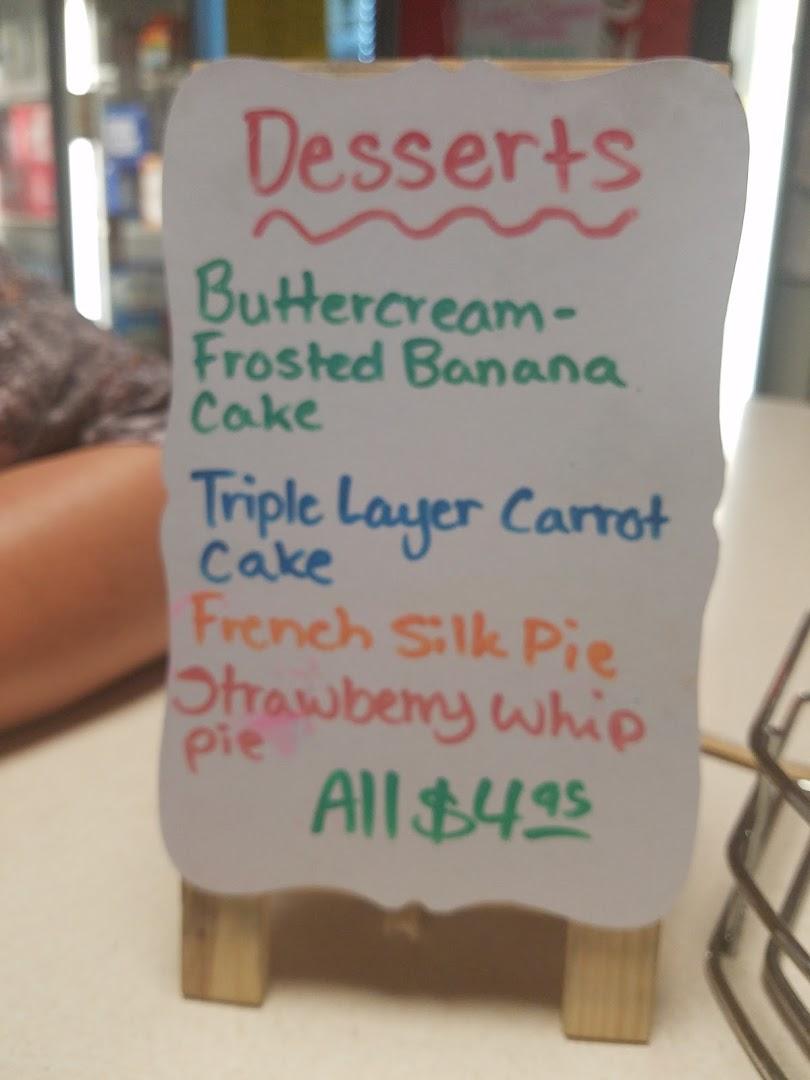 Desserts
Buttercream-
Frosted Banana
Cake
Triple Layer Carrot
Cake
French Silk Pie
Strawberry Whip
pie
All $4.95